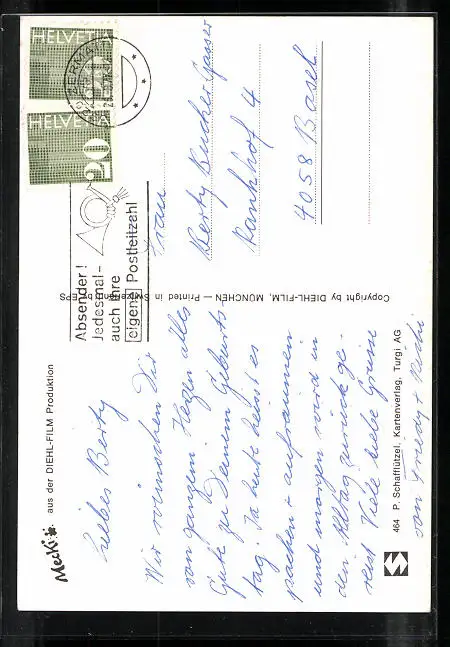 Mecki aus der DIEHL-FILM Produktion
Liebes Berty
Wir wünschen Dir
von ganzem Herzen alles
Gute zu Deinem Geburts
tag. Ja heute heisst es
packen + aufräumen
und morgen wird in
den Alltag zurück ge-
reist Viele liebe Grüsse
von Friedy +
464 P. Schafflützel, Kartenverlag, Turgi AG
Copyright by DIEHL-FILM, MÜNCHEN — Printed in Switzerland by EPS
HELVETIA
20
HELVETIA
20
ZERMATT
Absender!
Jedesmal-
auch Ihre
eigene Postleitzahl
Frau
Berty Bucher-Gasser
Rankhof 4
4058 Basel